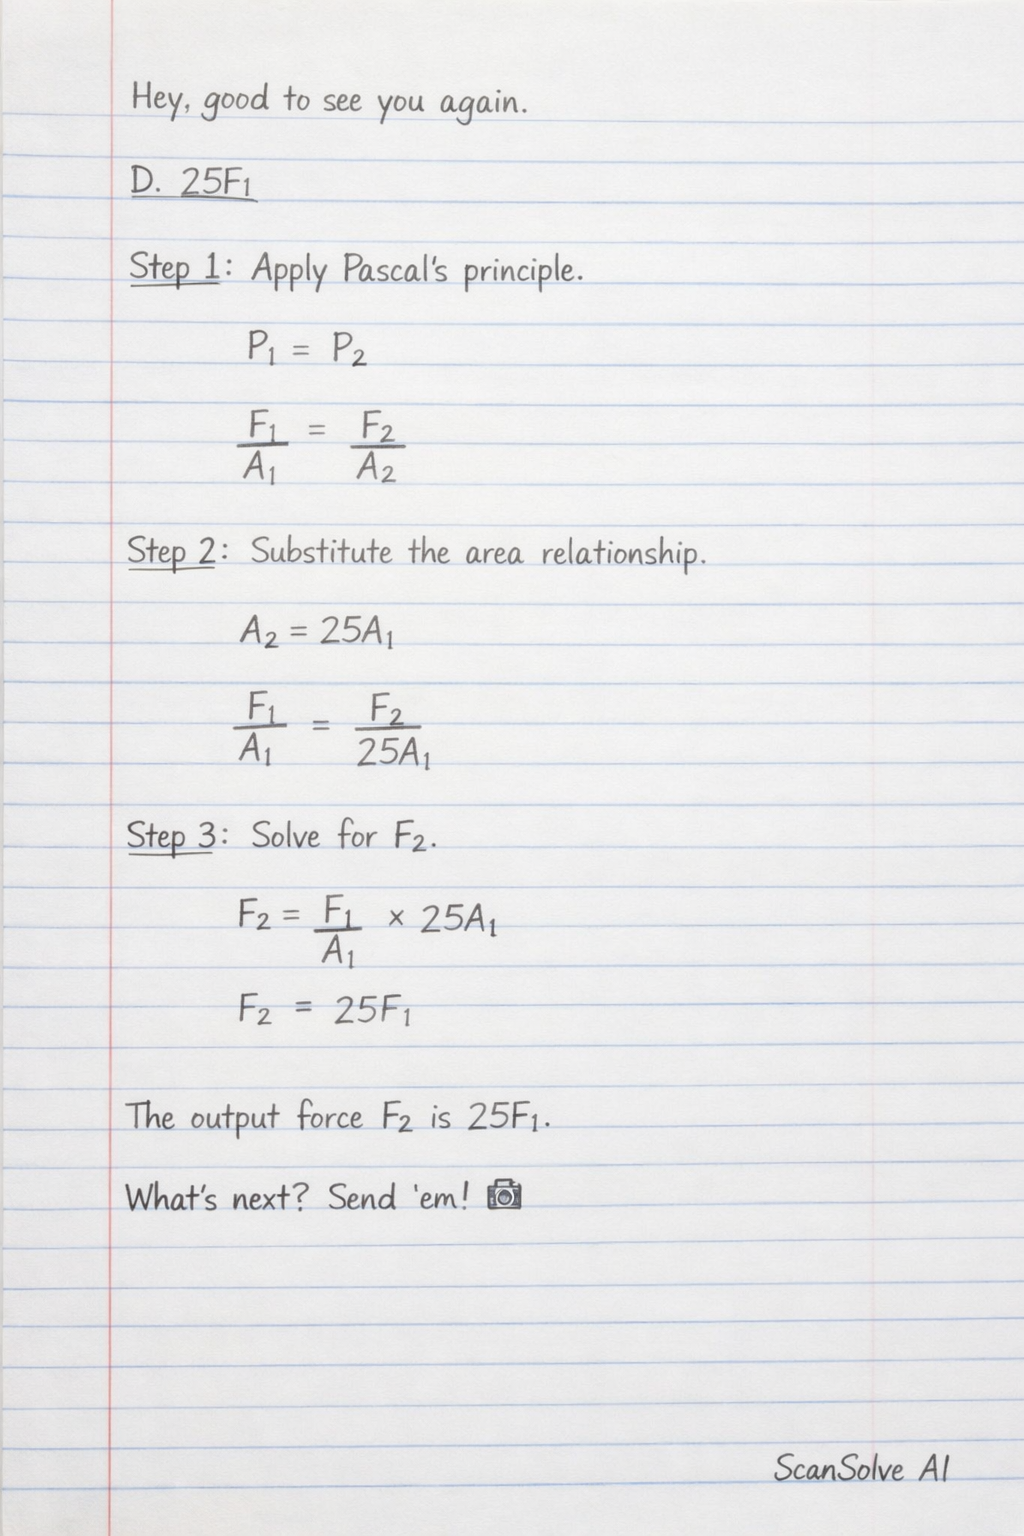 Hey, good to see you again.
D. 25F₁
Step 1: Apply Pascal's principle.
P₁ = P₂
F₁/A₁ = F₂/A₂
Step 2: Substitute the area relationship.
A₂ = 25A₁
F₁/A₁ = F₂/25A₁
Step 3: Solve for F₂.
F₂ = F₁/A₁ × 25A₁
F₂ = 25F₁
The output force F₂ is 25F₁.
What's next? Send 'em! 📷
ScanSolve AI